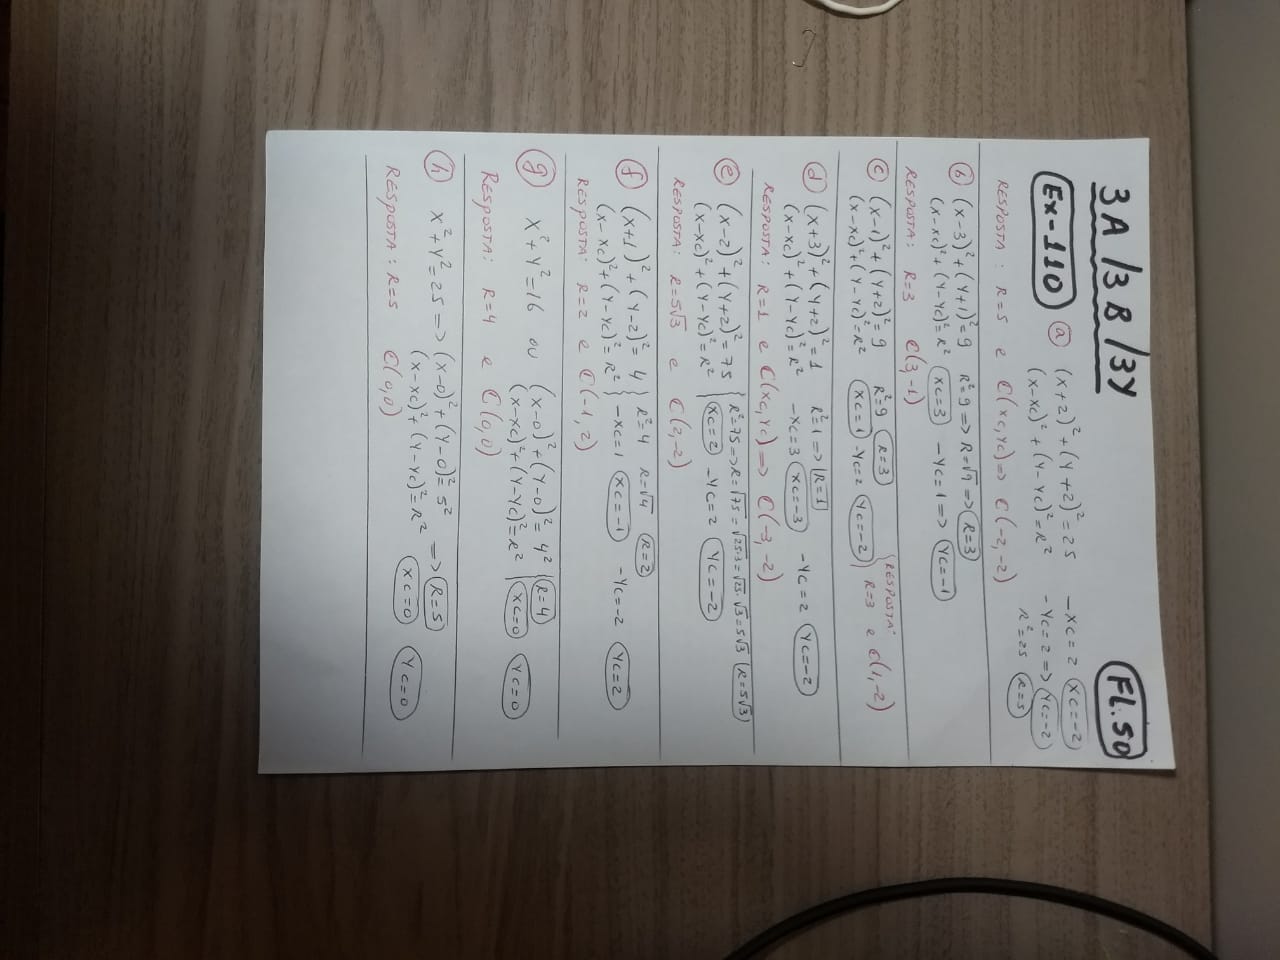 3A /3B /3Y FL.50
Ex-110 a (x+2)²+(Y+2)²=25 -XC=2 XC=-2
(x-xc)²+(Y-Yc)²=R² -YC=2=> YC=-2
R²=25 R=5
RESPOSTA: R=5 e C(xc,Yc)=> C(-2,-2)
b (x-3)²+(Y+1)²=9 R²=9=>R=√9=>R=3
(x-xc)²+(Y-Yc)²=R² XC=3 -YC=1=> YC=-1
RESPOSTA: R=3 C(3,-1)
c (x-1)²+(Y+2)²=9 R²=9 R=3 RESPOSTA:
(x-xc)²+(Y-Yc)²=R² XC=1 -YC=2 YC=-2 R=3 e C(1,-2)
d (x+3)²+(Y+2)²=1 R²=1=>R=1
(x-xc)²+(Y-Yc)²=R² -XC=3 XC=-3 -YC=2 YC=-2
RESPOSTA: R=1 e C(xc,Yc)=> C(-3,-2)
e (x-2)²+(Y+2)²=75 R²=75=>R=√75=√25·3=√25·√3=5√3 R=5√3
(x-xc)²+(Y-Yc)²=R² XC=2 -YC=2 YC=-2
RESPOSTA: R=5√3 e C(2,-2)
f (x+1)²+(Y-2)²=4 R²=4 R=√4 R=2
(x-xc)²+(Y-Yc)²=R² -XC=1 XC=-1 -YC=-2 YC=2
RESPOSTA: R=2 e C(-1,2)
g X²+Y²=16 ou (x-0)²+(Y-0)²=4² R=4
(x-xc)²+(Y-Yc)²=R² XC=0 YC=0
RESPOSTA: R=4 e C(0,0)
h X²+Y²=25=>(x-0)²+(Y-0)²=5² =>R=5
(x-xc)²+(Y-Yc)²=R² XC=0 YC=0
RESPOSTA: R=5 C(0,0)